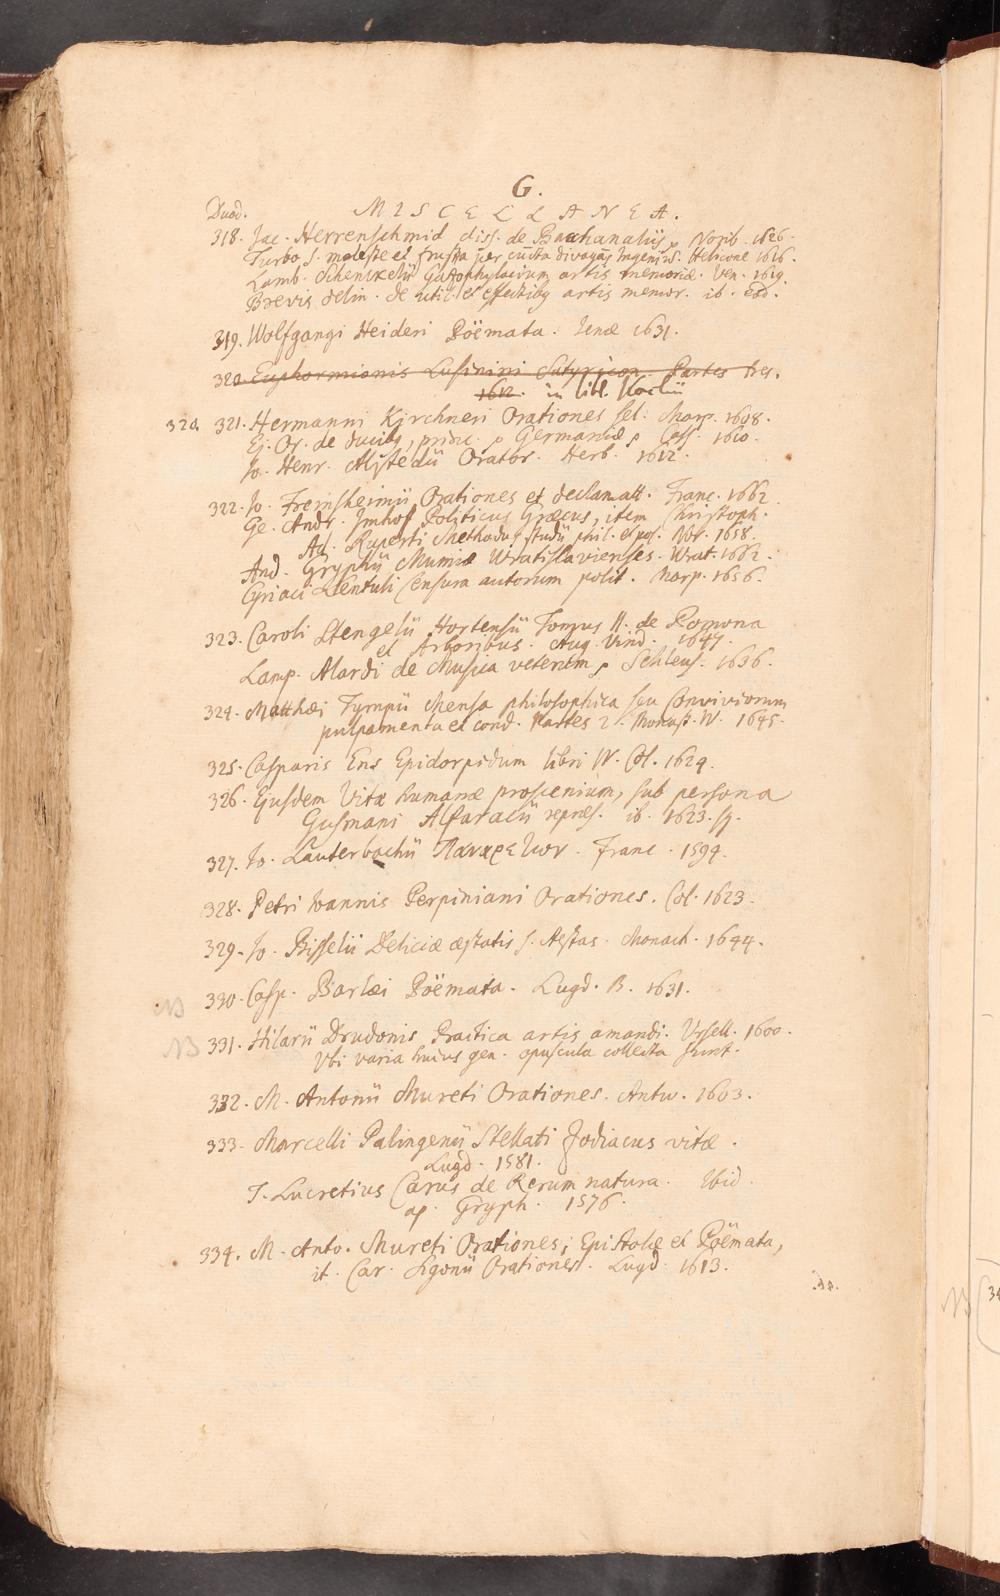 G.
Duod. MISCELLANEA.
318. Jac. Herrenschmid diss. de Bacchanaliis, Norib. 1626.
Turbo s. moleste et frustra per cuncta divagans Ingenium. Helicone 1616.
Lamb. Schenckelii Gazophylacium artis memoriæ. Ven. 1619.
Brevis delin. de util. et effectibus artis memor. ib. eod.
319. Wolfgangi Heideri Poëmata. Jenæ 1631.
320. Euphormionis Lusinini Satyricon. Partes tres.
1612. in libl. Kochii
320. 321. Hermanni Kirchneri Orationes sel. Marp. 1608.
Ej. Or. de ducibus, princ. Germaniæ, Cass. 1610.
Jo. Henr. Alstedii Orator. Herb. 1612.
322. Jo. Freinshemii Orationes et declamatt. Franc. 1662.
Ge. Andr. Imhof Politicus Græcus, item Christoph.
Ad. Ruperti Methodus studii phil. et pol. Nor. 1658.
And. Gryphii Mumiæ Wratislavienses. Wrat. 1662.
Cyriaci Lentuli Censura autorum polit. Marp. 1656.
323. Caroli Stengelii Hortensii Tomus II. de Pomona
et Arboribus. Aug. Vind. 1647.
Lamp. Alardi de Musica veterum, Schleus. 1636.
324. Matthæi Tympii Mensa philosophica seu Conviviorum
pulpamenta et cond. Partes 2. Monast. W. 1645.
325. Casparis Ens Epidorpidum libri IV. Col. 1624.
326. Ejusdem Vitæ humanæ proscenium, sub persona
Gusmani Alfaracii repræs. ib. 1623. sq.
327. Jo. Lauterbachii Πανάρετον. Franc. 1594.
328. Petri Joannis Perpiniani Orationes. Col. 1623.
329. Jo. Bisselii Deliciæ æstatis s. Aestas. Monach. 1644.
NB 330. Casp. Barlæi Poëmata. Lugd. B. 1631.
NB 331. Hilarii Drudonis Practica artis amandi. Ursell. 1600.
Vbi varia huius gen. opuscula collecta sunt.
332. M. Antonii Mureti Orationes. Antw. 1603.
333. Marcelli Palingenii Stellati Zodiacus vitæ.
Lugd. 1581.
T. Lucretius Carus de Rerum natura. Ibid.
ap. Gryph. 1576.
334. M. Anto. Mureti Orationes, Epistolæ et Poëmata,
it. Car. Sigonii Orationes. Lugd. 1613.
NB